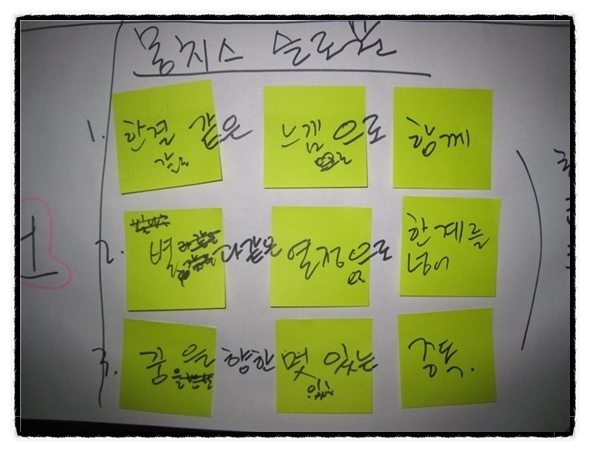 몽치스 슬로건
1. 한결 같은 느낌으로 함께
같은
2. 별 다같은 열정으로 한계를
넘어
3. 꿈을 향한 멋 있는 중독.